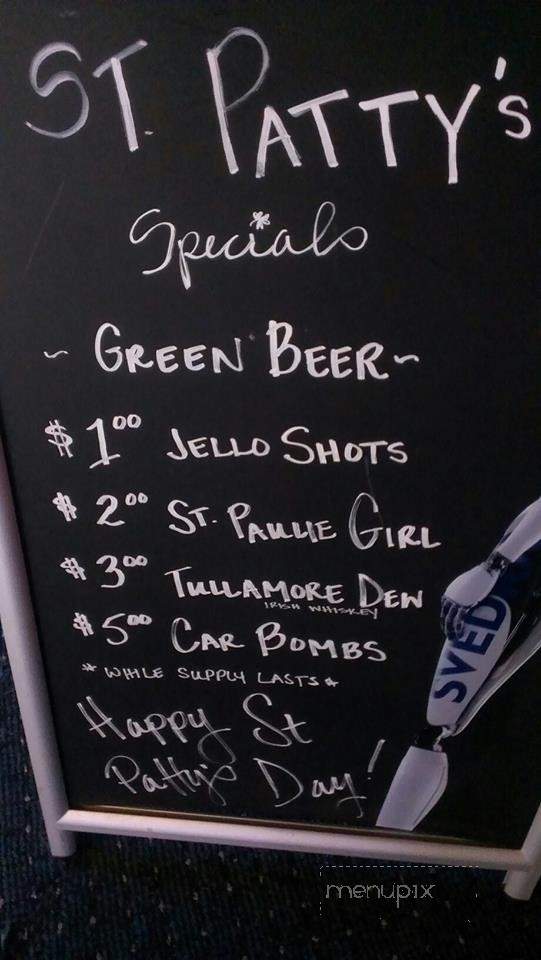 ST. PATTY'S
Specials
~ GREEN BEER ~
$1.00 JELLO SHOTS
$2.00 ST. PAULIE GIRL
$3.00 TULLAMORE DEW
IRISH WHISKEY
$5.00 CAR BOMBS
* WHILE SUPPLY LASTS *
Happy St
Patty's Day!
SVED
menupix